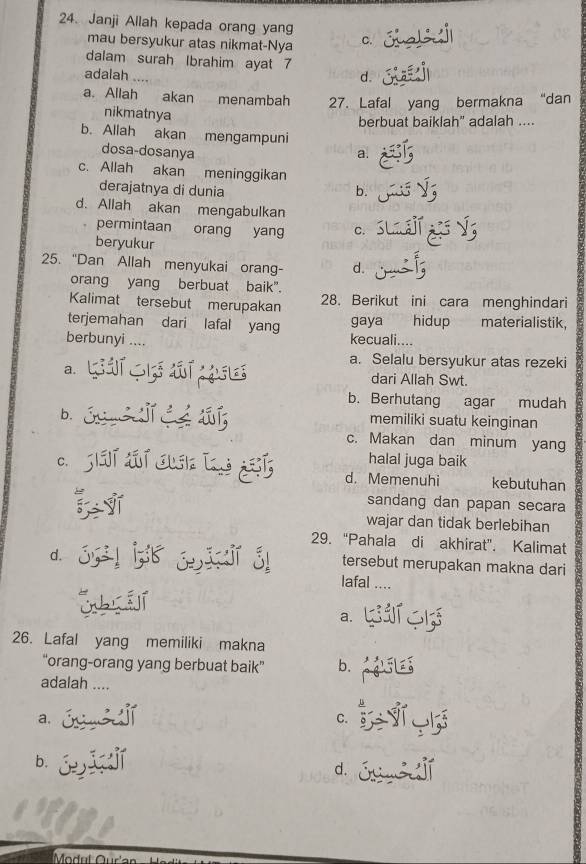 24. Janji Allah kepada orang yang
mau bersyukur atas nikmat-Nya
dalam surah Ibrahim ayat 7
adalah ....
a. Allah akan menambah
nikmatnya
b. Allah akan mengampuni
dosa-dosanya
c. Allah akan meninggikan
derajatnya di dunia
d. Allah akan mengabulkan
permintaan orang yang
beryukur
25. "Dan Allah menyukai orang-
orang yang berbuat baik".
Kalimat tersebut merupakan
terjemahan dari lafal yang
berbunyi ....
a. فَاٰتٰىهُمُ اللّٰهُ ثَوَابَ الدُّنْيَا
b. وَاللّٰهُ يُحِبُّ الْمُحْسِنِيْنَ
c. وَابْتَغِ فِيْمَآ اٰتٰىكَ اللّٰهُ الدَّارَ
الْاٰخِرَةَ
d. اِنَّ الْمُبَذِّرِيْنَ كَانُوْٓا اِخْوَانَ
الشَّيٰطِيْنِ
26. Lafal yang memiliki makna
"orang-orang yang berbuat baik"
adalah ....
a. الْمُحْسِنِيْنَ
b. الْمُبَذِّرِيْنَ
c. الْمُخْلِصِيْنَ
d. الْمُتَّقِيْنَ
27. Lafal yang bermakna "dan
berbuat baiklah" adalah ....
a. وَابْتَغِ
b. وَلَا تَنْسَ
c. وَلَا تَبْغِ الْفَسَادَ
d. وَاَحْسِنْ
28. Berikut ini cara menghindari
gaya hidup materialistik,
kecuali....
a. Selalu bersyukur atas rezeki
dari Allah Swt.
b. Berhutang agar mudah
memiliki suatu keinginan
c. Makan dan minum yang
halal juga baik
d. Memenuhi kebutuhan
sandang dan papan secara
wajar dan tidak berlebihan
29. "Pahala di akhirat". Kalimat
tersebut merupakan makna dari
lafal ....
a. ثَوَابَ الدُّنْيَا
b. فَاٰتٰىهُمُ
c. ثَوَابِ الْاٰخِرَةِ
d. الْمُحْسِنِيْنَ
Modul Qur'an